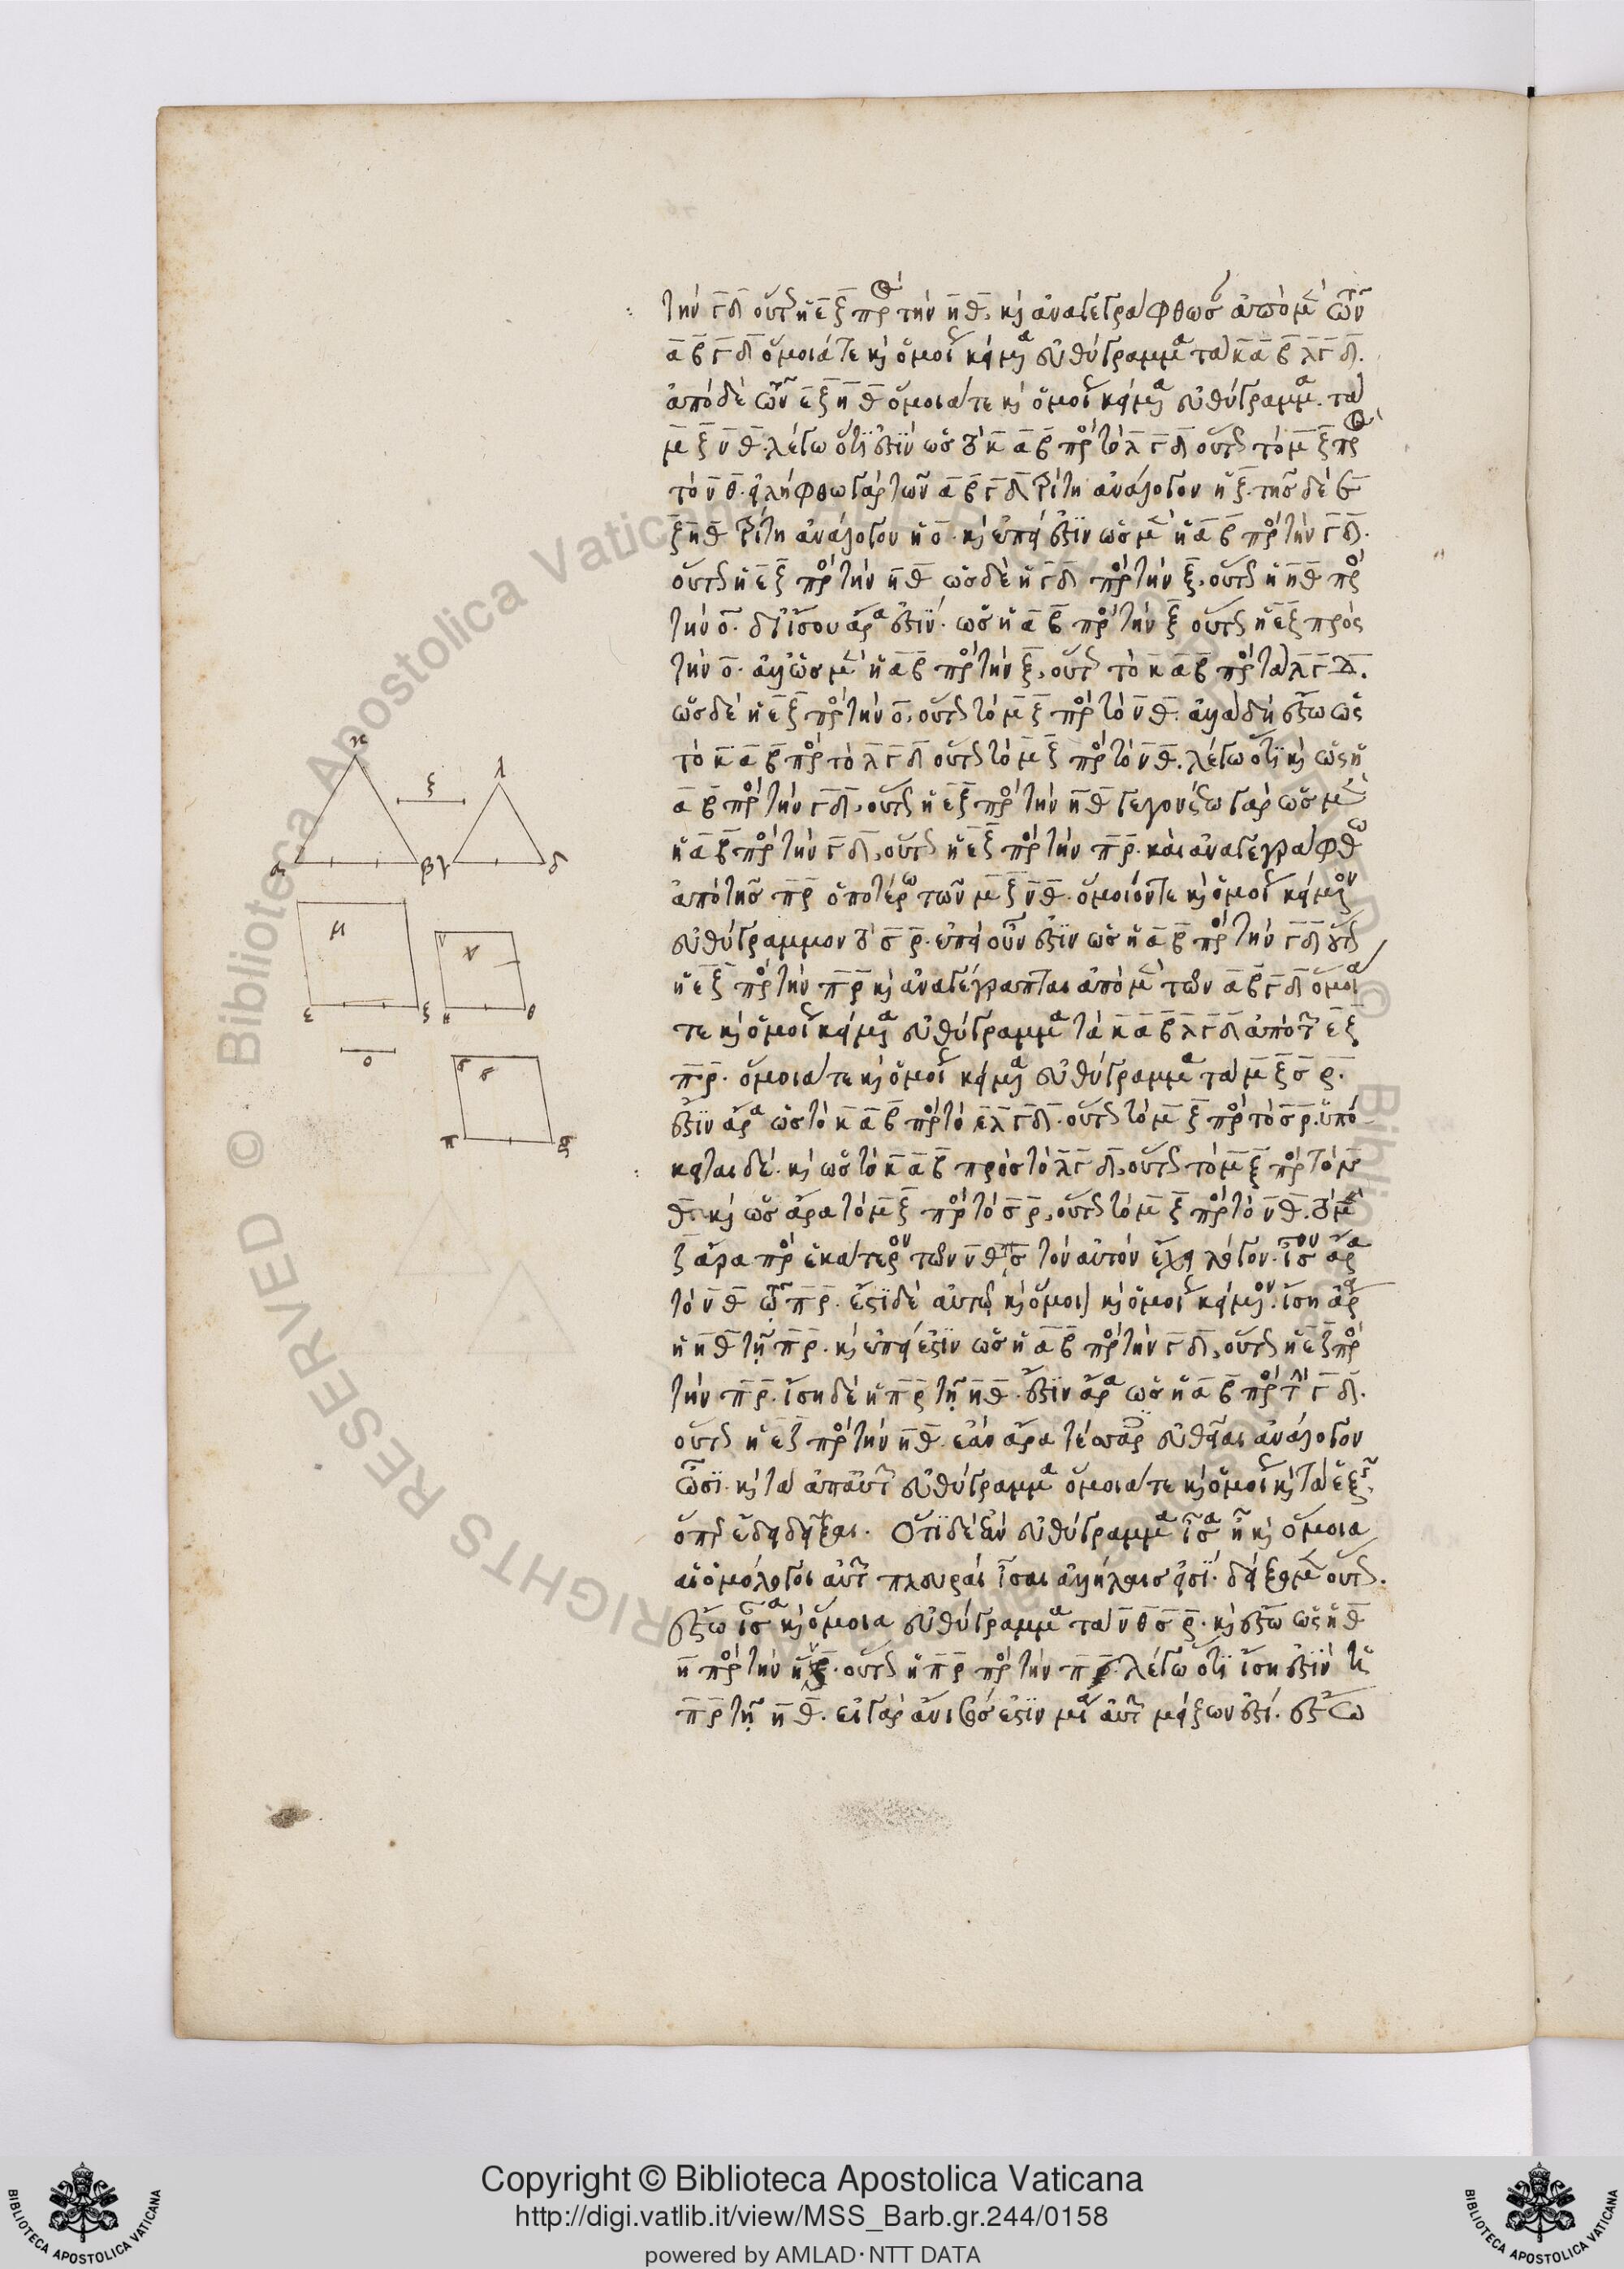 τὴν γδ οὕτως ἡ εζ πρὸς τὴν ηθ. καὶ ἀναγεγράφθωσαν ἀπὸ μὲν τῶν
αβ γδ ὅμοιά τε καὶ ὁμοίως κείμενα εὐθύγραμμα τὰ καβ λγδ.
ἀπὸ δὲ τῶν εζ ηθ ὅμοιά τε καὶ ὁμοίως κείμενα εὐθύγραμμα. τὰ
μζ νθ. λέγω ὅτι ἐστὶν ὡς τὸ καβ πρὸς τὸ λγδ οὕτως τὸ μζ πρὸς
τὸ νθ. εἰλήφθω γὰρ τῶν αβ γδ τρίτη ἀνάλογον ἡ ξ. τῆς δὲ ε
ζ ηθ τρίτη ἀνάλογον ἡ ο. καὶ ἐπεί ἐστιν ὡς μὲν ἡ αβ πρὸς τὴν γδ.
οὕτως ἡ εζ πρὸς τὴν ηθ ὡς δὲ ἡ γδ πρὸς τὴν ξ, οὕτως ἡ ηθ πρὸς
τὴν ο. δι' ἴσου ἄρα ἐστίν. ὡς ἡ αβ πρὸς τὴν ξ οὕτως ἡ εζ πρὸς
τὴν ο. ἀλλ' ὡς μὲν ἡ αβ πρὸς τὴν ξ, οὕτως τὸ καβ πρὸς τὸ λγδ.
ὡς δὲ ἡ εζ πρὸς τὴν ο, οὕτως τὸ μζ πρὸς τὸ νθ. ἀλλὰ δὴ ἔστω ὡς
τὸ καβ πρὸς τὸ λγδ οὕτως τὸ μζ πρὸς τὸ νθ. λέγω ὅτι καὶ ὡς ἡ
αβ πρὸς τὴν γδ, οὕτως ἡ εζ πρὸς τὴν ηθ γεγονέτω γὰρ ὡς μὲν
ἡ αβ πρὸς τὴν γδ, οὕτως ἡ εζ πρὸς τὴν πρ. καὶ ἀναγεγράφθω
ἀπὸ τῆς πρ ὁποτέρῳ τῶν μζ νθ. ὅμοιόν τε καὶ ὁμοίως κείμενον
εὐθύγραμμον τὸ σρ. ἐπεὶ οὖν ἐστιν ὡς ἡ αβ πρὸς τὴν γδ οὕτως
ἡ εζ πρὸς τὴν πρ καὶ ἀναγέγραπται ἀπὸ μὲν τῶν αβ γδ ὅμοιά
τε καὶ ὁμοίως κείμενα εὐθύγραμμα τὰ καβ λγδ ἀπὸ τῶν εζ
πρ. ὅμοιά τε καὶ ὁμοίως κείμενα εὐθύγραμμα τὰ μζ σρ.
ἔστιν ἄρα ὡς τὸ καβ πρὸς τὸ λγδ. οὕτως τὸ μζ πρὸς τὸ σρ. ὑπό
κειται δὲ. καὶ ὡς τὸ καβ πρὸς τὸ λγδ, οὕτως τὸ μζ πρὸς τὸ ν
θ. καὶ ὡς ἄρα τὸ μζ πρὸς τὸ σρ, οὕτως τὸ μζ πρὸς τὸ νθ. τὸ μ
ζ ἄρα πρὸς ἑκάτερον τῶν νθ σρ τὸν αὐτὸν ἔχει λόγον. ἴσον ἄρα
τὸ νθ τῷ πρ. ἔστι δὲ αὐτῷ καὶ ὅμοιον καὶ ὁμοίως κείμενον. ἴση ἄρα
ἡ ηθ τῇ πρ. καὶ ἐπεί ἐστιν ὡς ἡ αβ πρὸς τὴν γδ, οὕτως ἡ εζ πρὸς
τὴν πρ. ἴση δὲ ἡ πρ τῇ ηθ. ἔστιν ἄρα ὡς ἡ αβ πρὸς τὴν γδ.
οὕτως ἡ εζ πρὸς τὴν ηθ. ἐὰν ἄρα τέσσαρες εὐθεῖαι ἀνάλογον
ὦσι. καὶ τὰ ἀπ' αὐτῶν εὐθύγραμμα ὅμοιά τε καὶ ὁμοίως καὶ τὰ ἑξῆς
ὅπερ ἔδει δεῖξαι. Ὅτι δὲ ἐὰν εὐθύγραμμα ἴσα ᾖ καὶ ὅμοια
αἱ ὁμόλογοι αὐτῶν πλευραὶ ἴσαι ἀλλήλαις εἰσί. δείξομεν οὕτως.
ἔστω ἴσα καὶ ὅμοια εὐθύγραμμα τὰ νθ σρ. καὶ ἔστω ὡς ἡ θ
η πρὸς τὴν ην. οὕτως ἡ πρ πρὸς τὴν π. λέγω ὅτι ἴση ἐστὶν ἡ
πρ τῇ ηθ. εἰ γὰρ ἄνισός ἐστιν μία αὐτῶν μείζων ἐστί. ἔστω
κ
ξ
λ
α
β γ
δ
μ
ν
ε
ζ η
θ
ο
σ
π